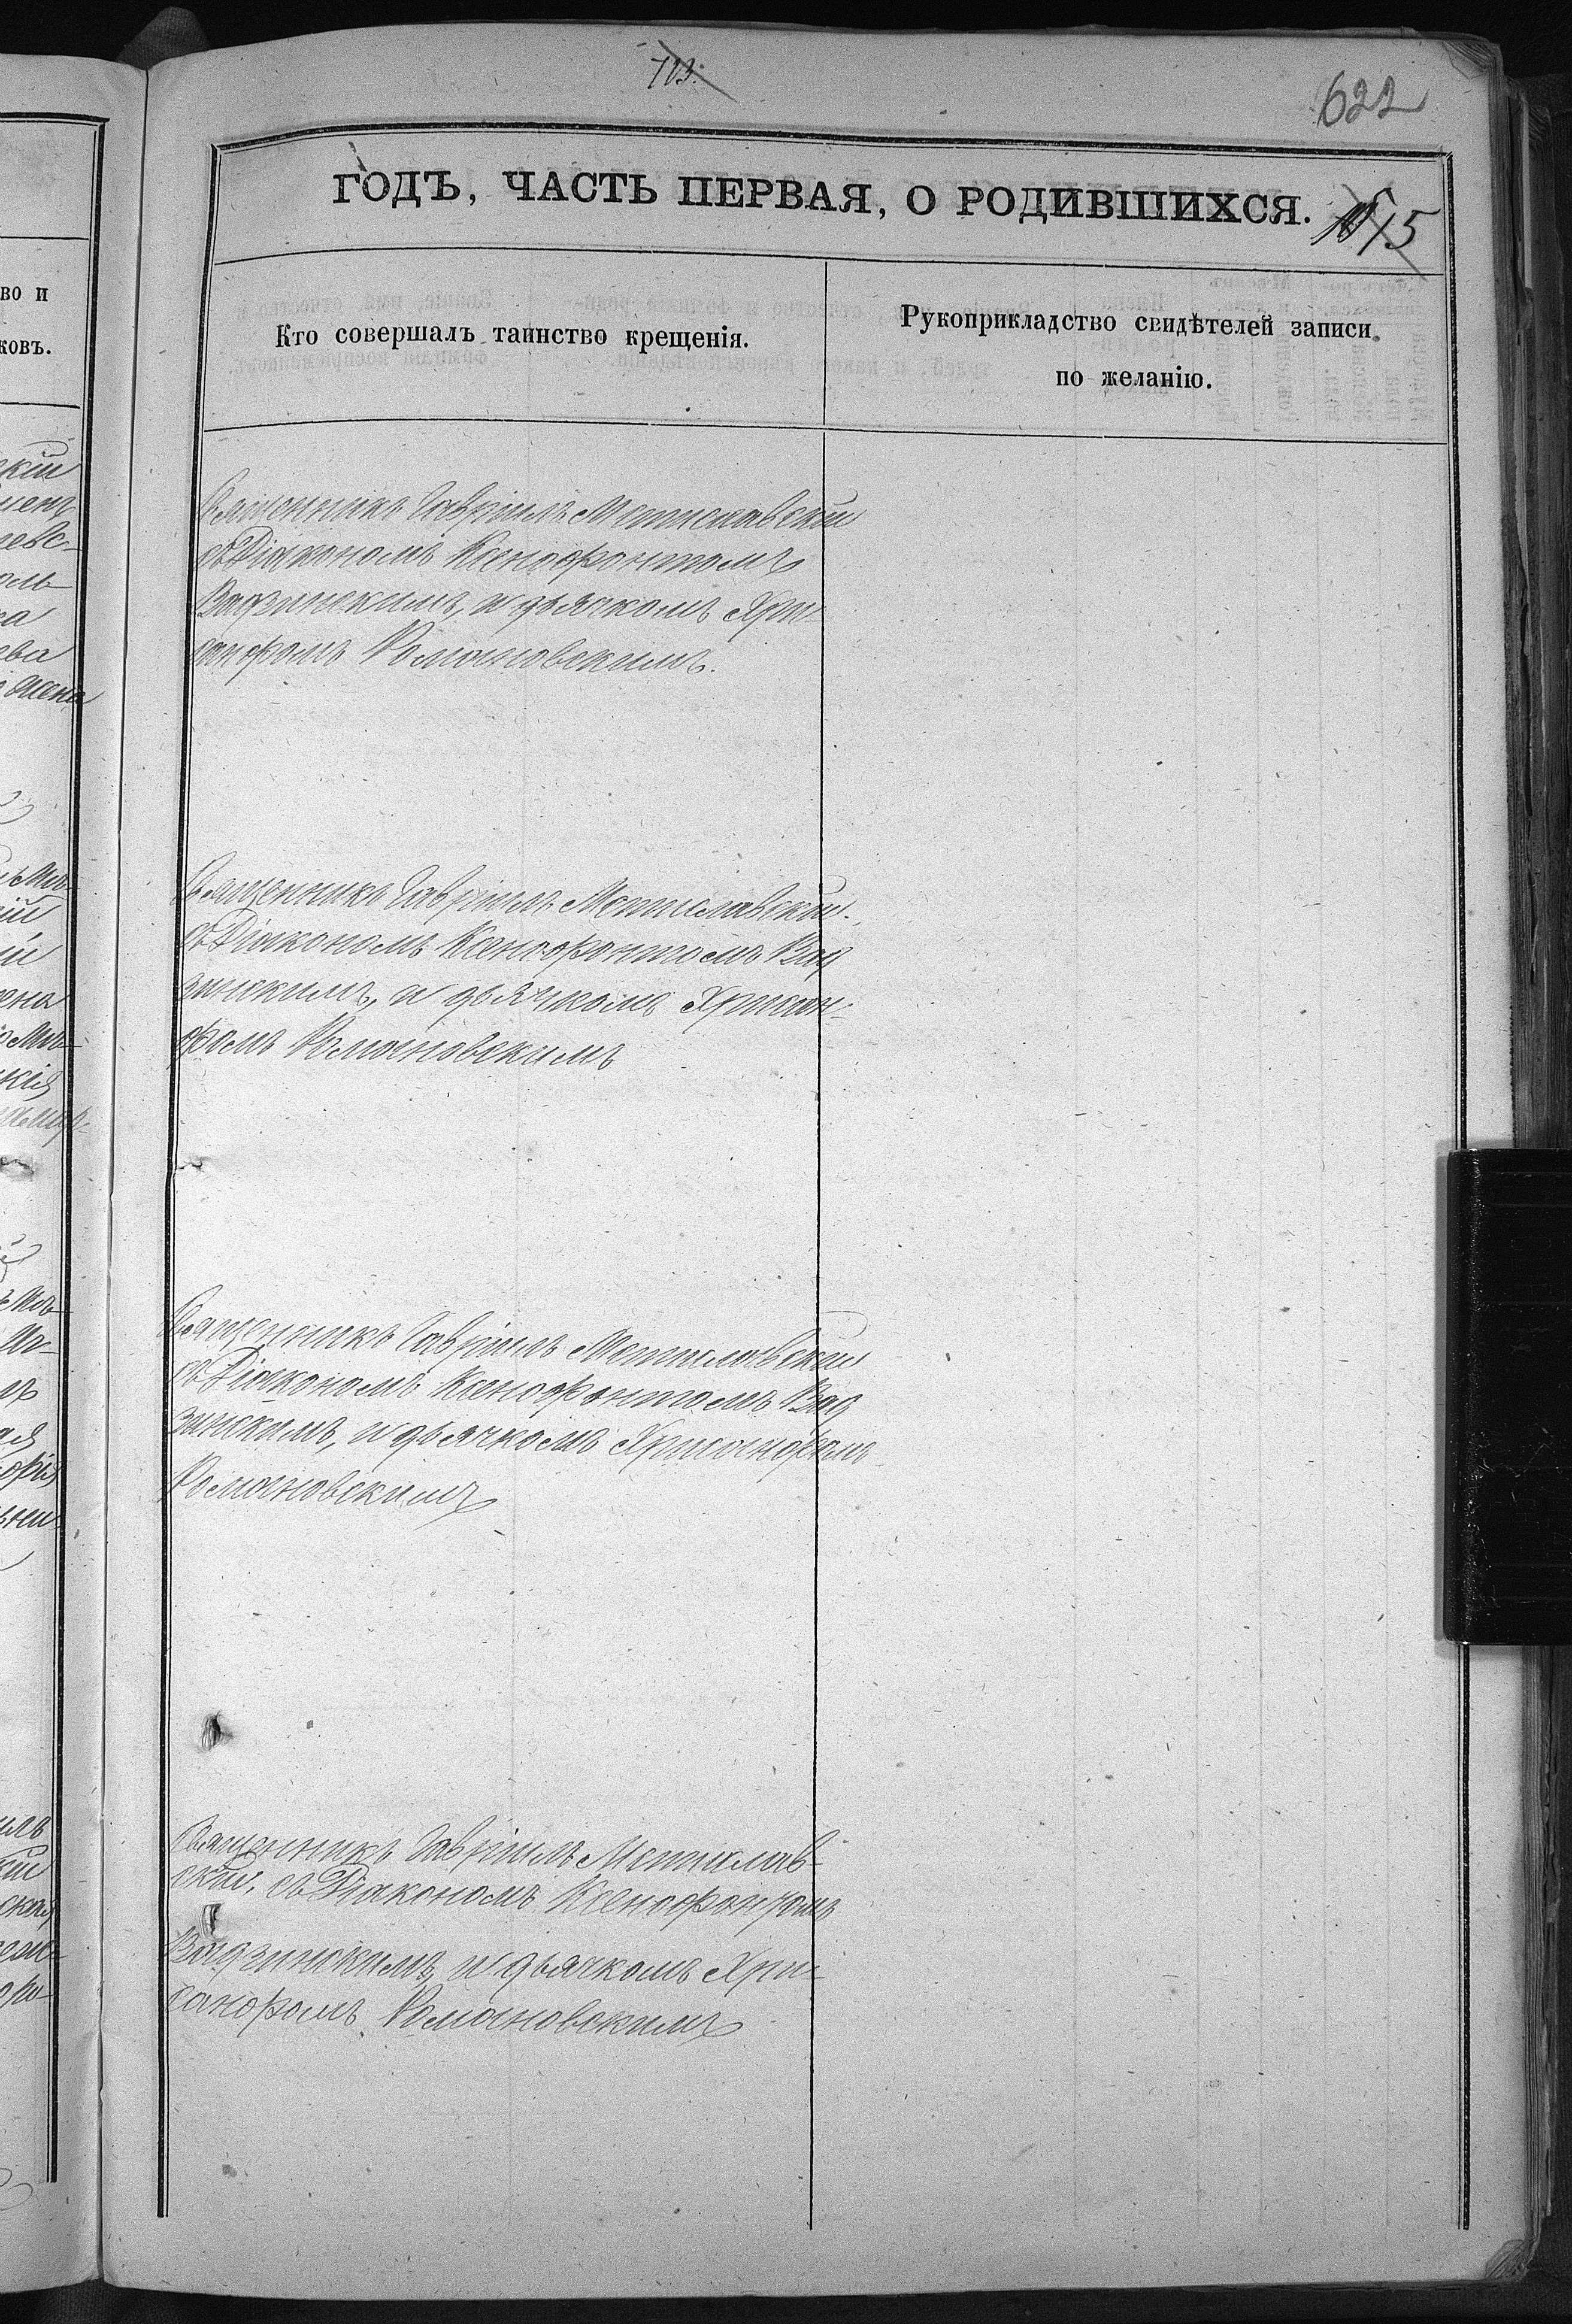 713.
622
ГОДЪ, ЧАСТЬ ПЕРВАЯ, О РОДИВШИХСЯ.
15
во и
ковъ.
Кто совершалъ таинство крещенія.
Рукоприкладство свидѣтелей записи
по желанію.
Священникъ Гавріилъ Мстиславскій
съ Діакономъ Ксенофонтомъ
Вадзинскимъ, и дьячкомъ Хри-
санфомъ Романовскимъ.
Священникъ Гавріилъ Мстиславскій.
съ Діакономъ Ксенофонтомъ Вад
зинскимъ, и дьячкомъ Хрисан-
фомъ Романовскимъ
Священникъ Гавріилъ Мстиславскій
съ Діакономъ Ксенофонтомъ Вад
зинскимъ, и дьячкомъ Хрисанфомъ
Романовскимъ
Священникъ Гавріилъ Мстислав-
скій, съ Діакономъ Ксенофонтомъ
Вадзинскимъ, и дьячкомъ Хри-
санфомъ Романовскимъ